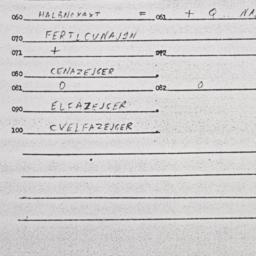 060 HALBNOXAXT = 061 + Q NA
070 FERTIGUNAJ9N
071 + 072
080 CENAZEJGER
081 0 082 0
090 ELGAZEJGER
100 CVELFAZEJGER